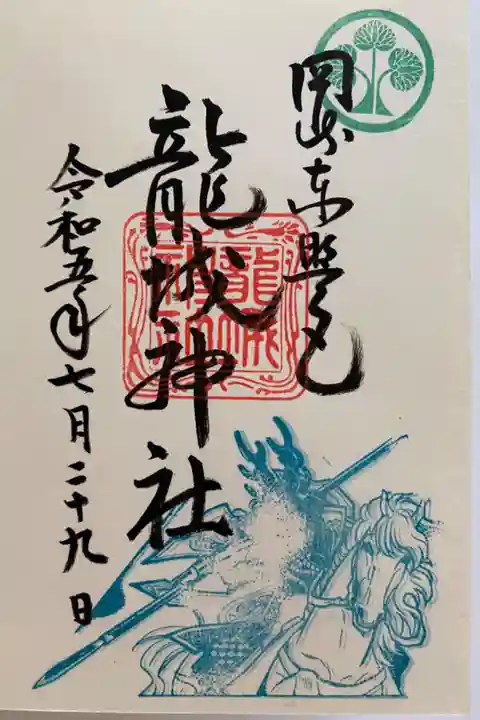 岡崎東照宮
龍城神社
令和五年七月二十九日
龍城神社